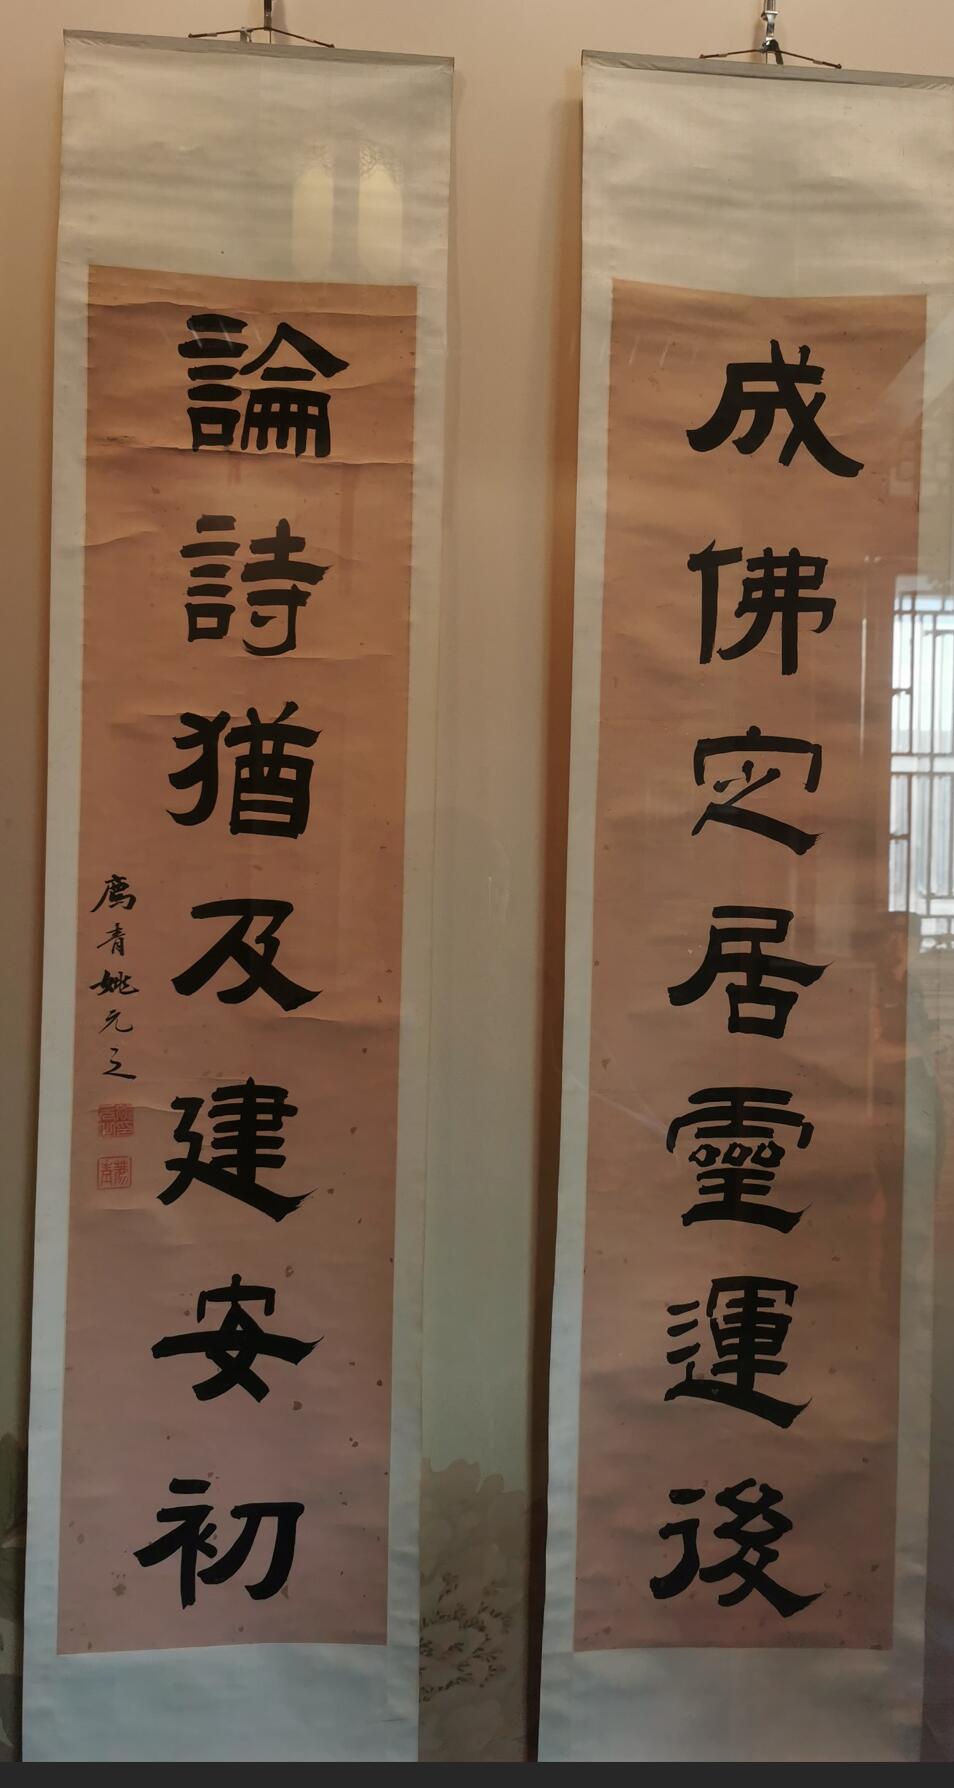 成佛定居靈運後
論詩猶及建安初
廌青姚元之